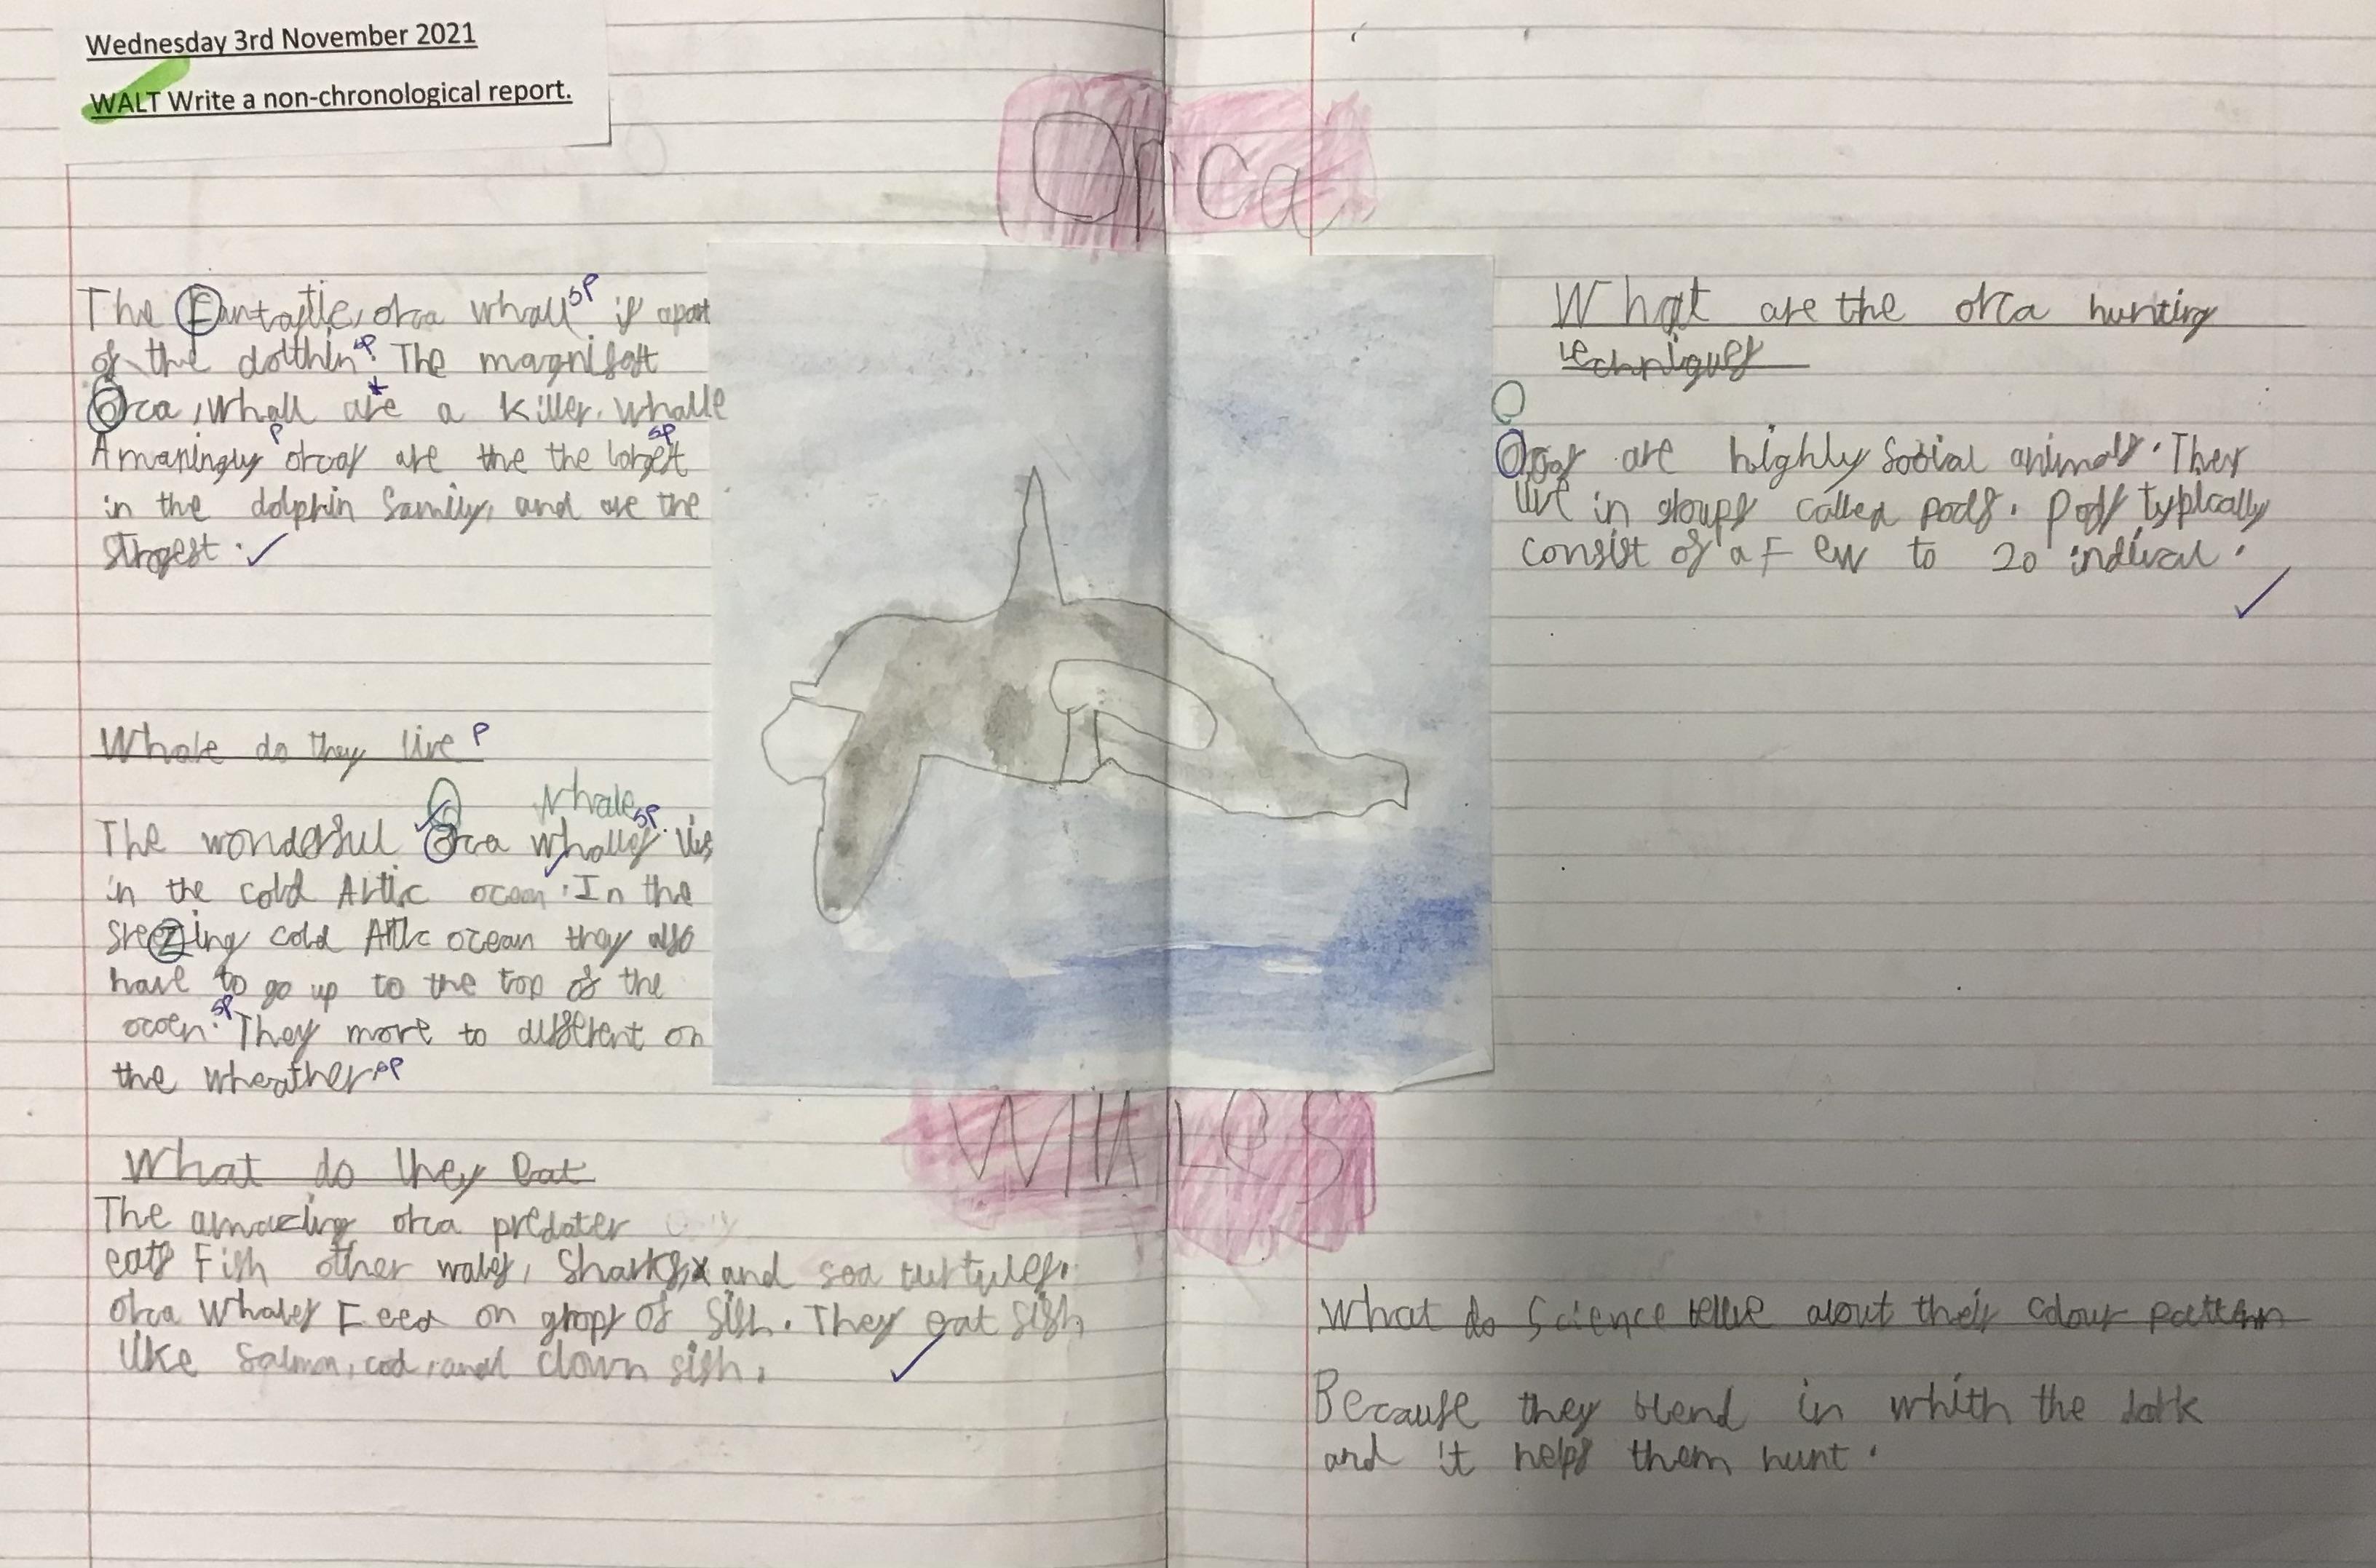 Wednesday 3rd November 2021
WALT Write a non-chronological report.
Orca
The Fantastic, orca whall sp is apart
of the dolthin sp. The magnifset
Orca, whall are a killer. whalle
Amazingly p orcas are the the lorgest sp
in the dolphin family, and are the
strogest.
Whale do they live P
Whale
The wonderful Orca wholles sp. livs
in the cold Artic ocean. In the
freezing cold Attic ocean they also
have to go up to the top of the
ocoen. sp They move to different on
the wheather sp
What do they eat
The amazing orca predater
eats Fish other wales, Sharks, x and sea turtules.
Orca Whales Feed on grops of fish. They eat fish
like salmon, cod, and clown fish.
WHALeS
What are the orca hunting
techniques
O
Orcas are highly social animals. They
live in groups called pods. Pods typically
consist of a F ew to 20 indivcal.
What do Science about their colour pattern
Because they blend in whith the dark
and it helps them hunt.